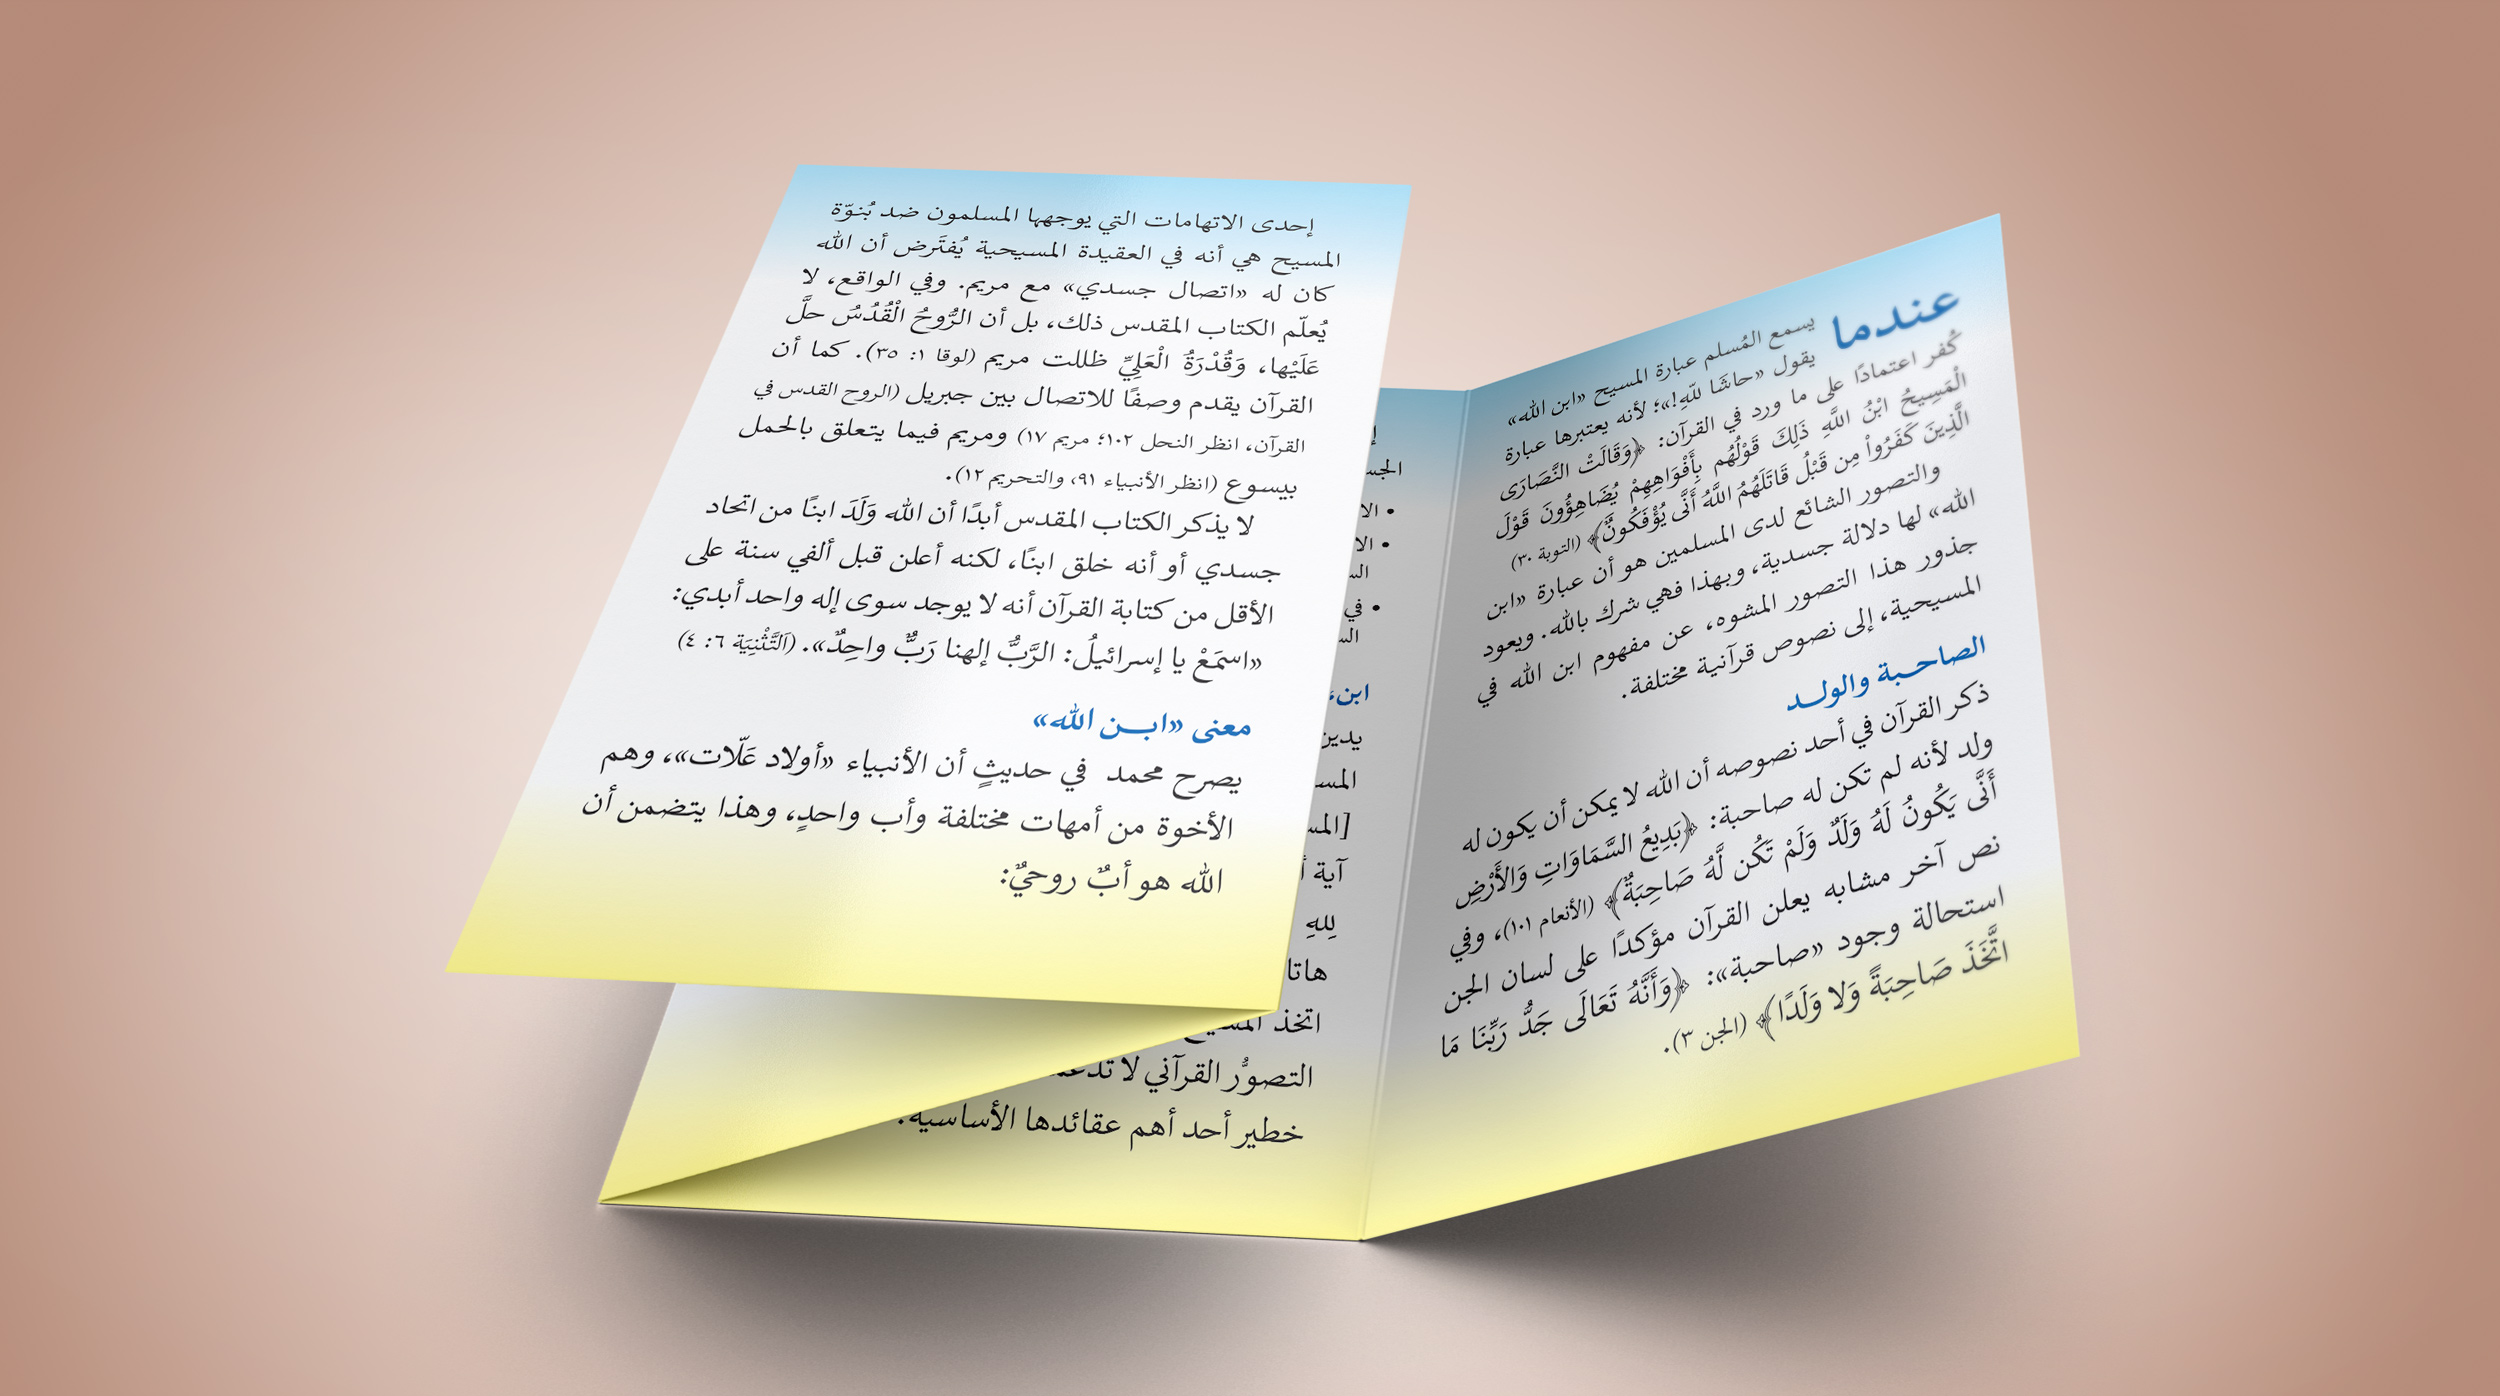 عندما يسمع المُسلم عبارة المسيح «ابن الله»
يقول «حاشَا للهِ!»؛ لأنه يعتبرها عبارة
كُفر اعتمادًا على ما ورد في القرآن: ﴿وَقَالَتْ النَّصَارَى
الْمَسِيحُ ابْنُ اللَّهِ ذَلِكَ قَوْلُهُم بِأَفْوَاهِهِمْ يُضَاهِؤُونَ قَوْلَ
الَّذِينَ كَفَرُواْ مِن قَبْلُ قَاتَلَهُمُ اللَّهُ أَنَّى يُؤْفَكُونَ﴾ (التوبة ٣٠)
والتصور الشائع لدى المسلمين هو أن عبارة «ابن
الله» لها دلالة جسدية، وبهذا فهي شرك بالله. ويعود
جذور هذا التصور المشوه، عن مفهوم ابن الله في
المسيحية، إلى نصوص قرآنية مختلفة.
الصاحبة والولد
ذكر القرآن في أحد نصوصه أن الله لا يمكن أن يكون له
ولد لأنه لم تكن له صاحبة: ﴿بَدِيعُ السَّمَاوَاتِ وَالأَرْضِ
أَنَّى يَكُونُ لَهُ وَلَدٌ وَلَمْ تَكُن لَّهُ صَاحِبَةٌ﴾ (الأنعام ١٠١)، وفي
نص آخر مشابه يعلن القرآن مؤكدًا على لسان الجن
استحالة وجود «صاحبة»: ﴿وَأَنَّهُ تَعَالَى جَدُّ رَبِّنَا مَا
اتَّخَذَ صَاحِبَةً وَلا وَلَدًا﴾ (الجن ٣).
• الا
• الا
• في
يدين
آية
لِلهِ
هاتا
اتخذ المسيح
التصوُّر القرآني لا
خطير أحد أهم عقائدها الأساسية.
إحدى الاتهامات التي يوجهها المسلمون ضد بُنوّة
المسيح هي أنه في العقيدة المسيحية يُفتَرض أن الله
كان له «اتصال جسدي» مع مريم. وفي الواقع، لا
يُعلّم الكتاب المقدس ذلك، بل أن الرُّوحُ الْقُدُسُ حلَّ
عَلَيْها، وَقُدْرَةُ الْعَلِيِّ ظللت مريم (لوقا ١: ٣٥). كما أن
القرآن يقدم وصفًا للاتصال بين جبريل (الروح القدس في
القرآن، انظر النحل ١٠٢؛ مريم ١٧) ومريم فيما يتعلق بالحمل
بيسوع (انظر الأنبياء ٩١، والتحريم ١٢).
لا يذكر الكتاب المقدس أبدًا أن الله وَلَدَ ابنًا من اتحاد
جسدي أو أنه خلق ابنًا، لكنه أعلن قبل ألفي سنة على
الأقل من كتابة القرآن أنه لا يوجد سوى إله واحد أبدي:
«اسمَعْ يا إسرائيلُ: الرَّبُّ إلهنا رَبٌّ واحِدٌ». (اَلتَّثْنِيَة ٦: ٤)
معنى «ابـن الله»
يصرح محمد في حديثٍ أن الأنبياء «أولاد عَلّات»، وهم
الأخوة من أمهات مختلفة وأب واحدٍ، وهذا يتضمن أن
الله هو أبٌ روحيٌ: